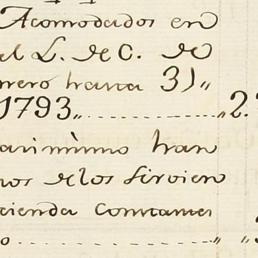 Acomodados en
el L. de C. de
nero hasta 31,,
1793,,..............,,2.
asimismo han
nos de los sirvien
cienda constame
o..................,, ,,3